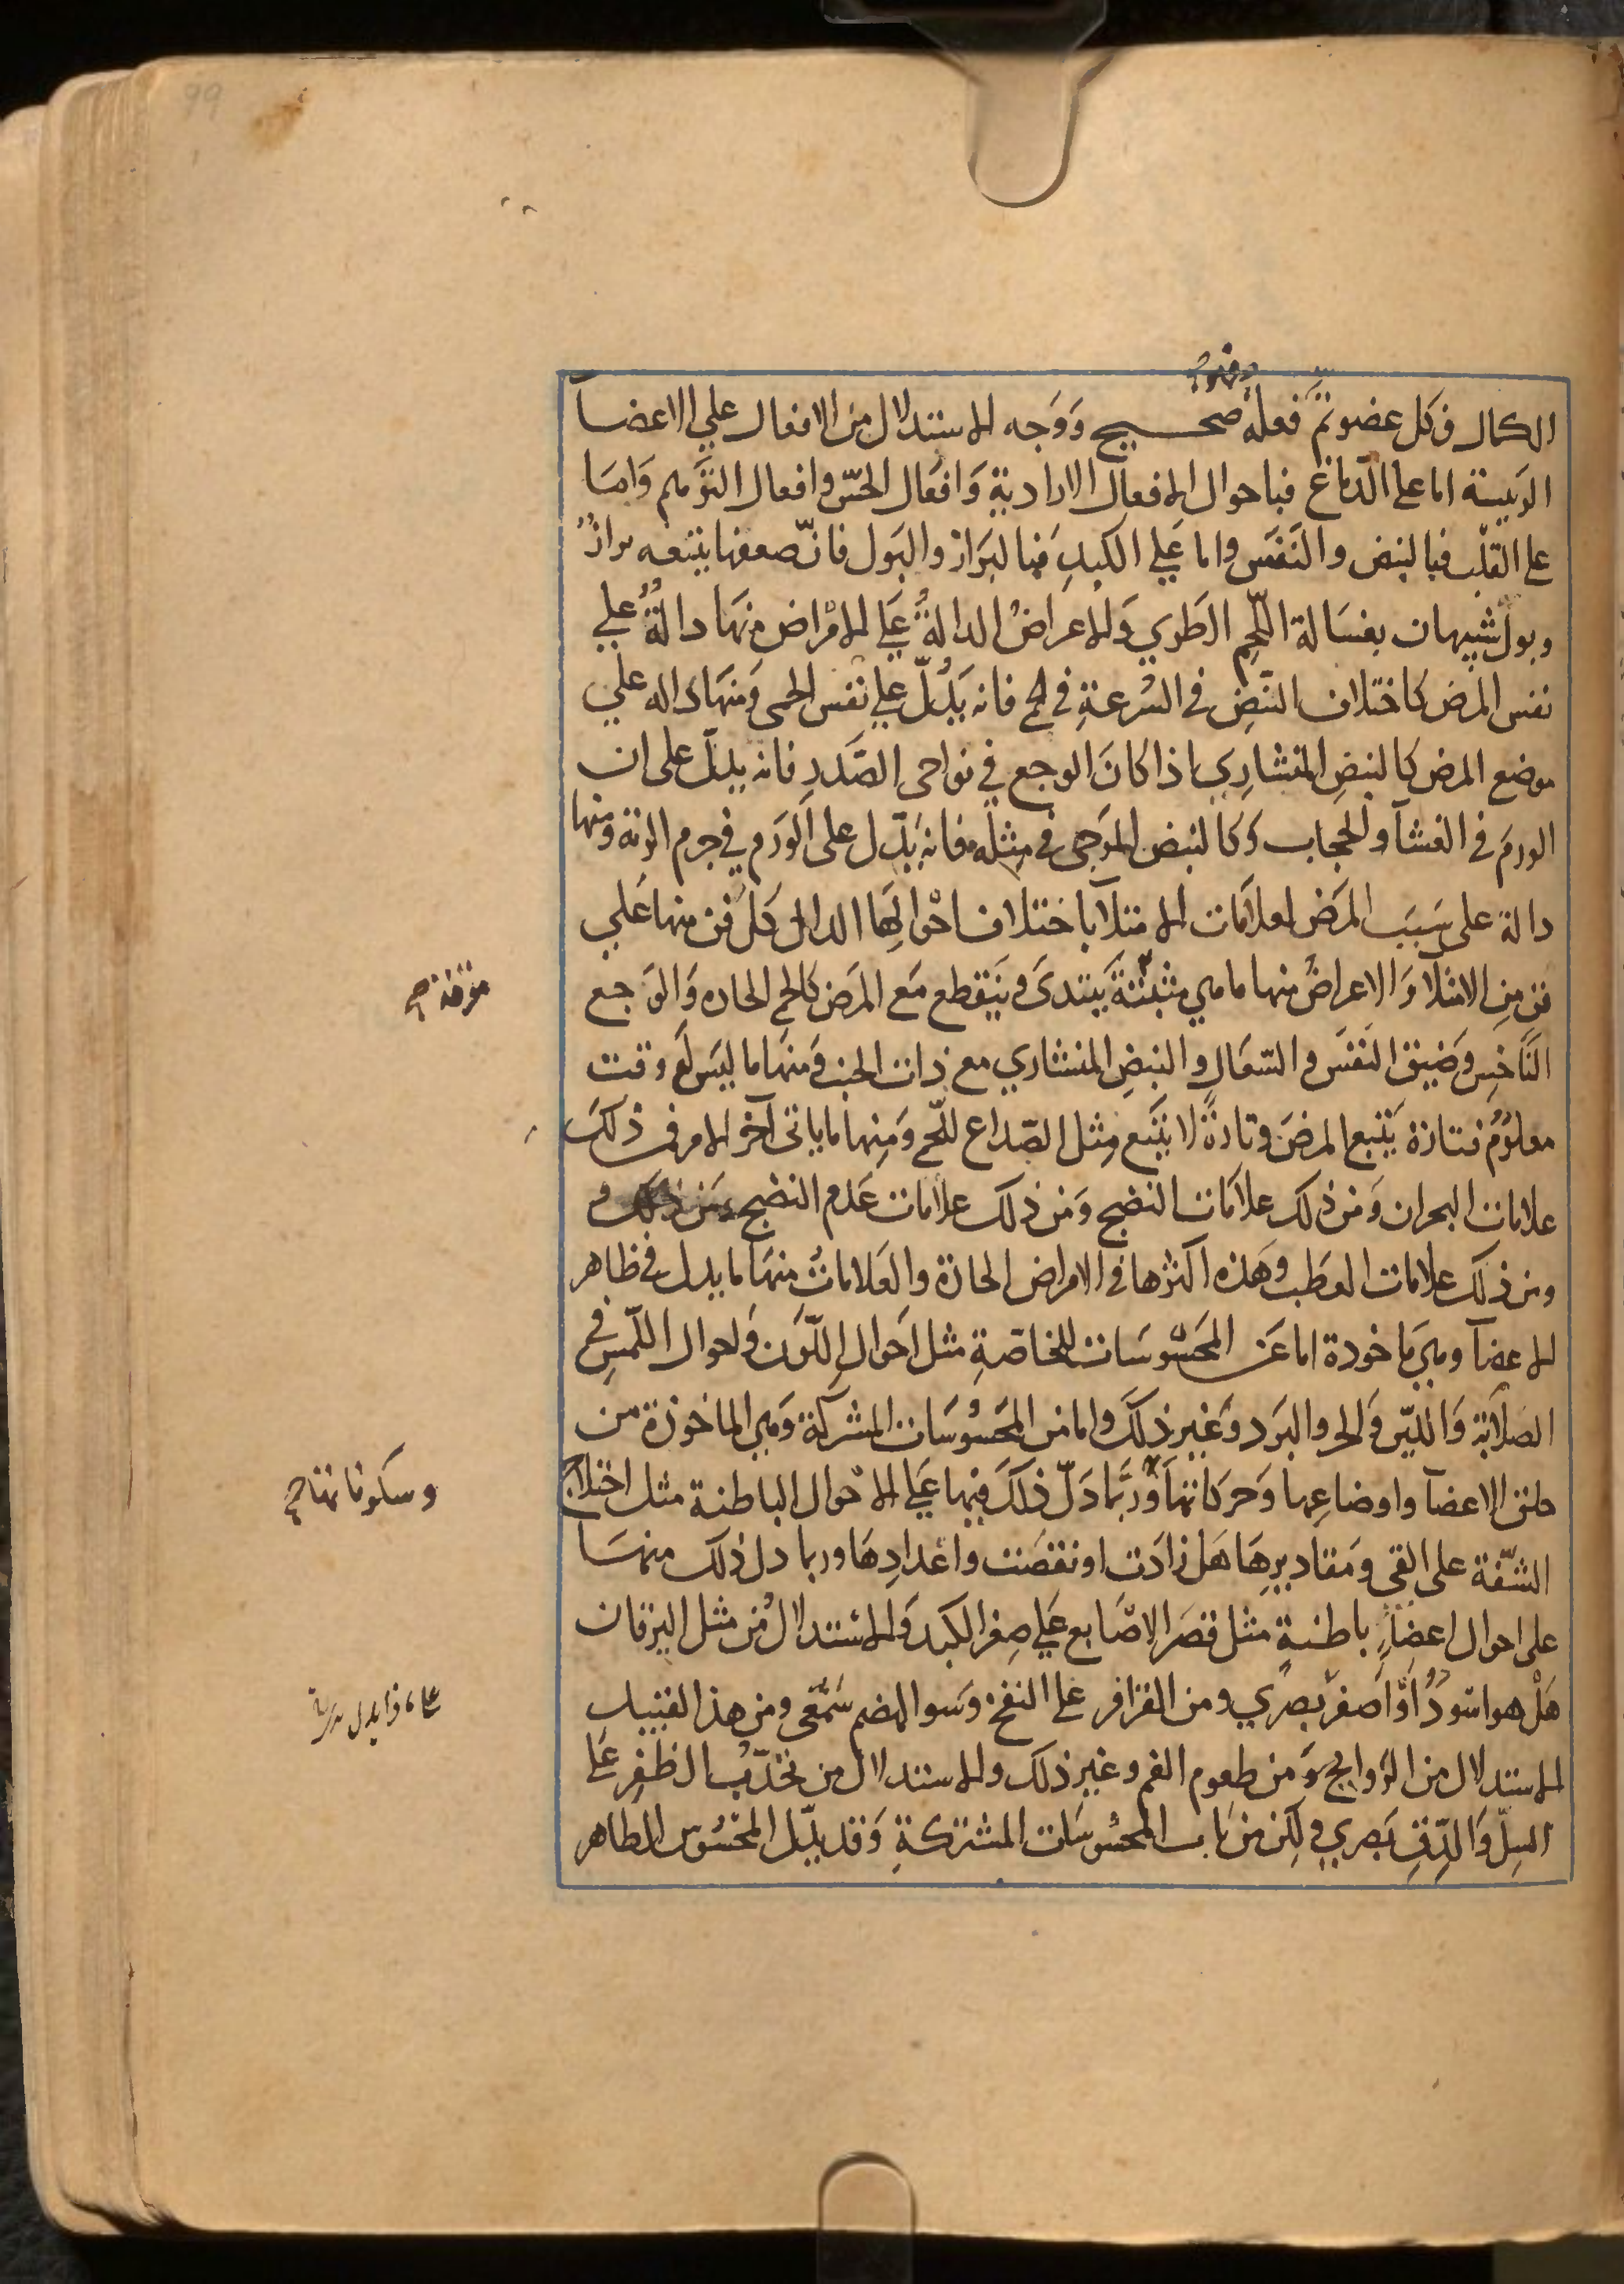 99
فهو
الكمال فكل عضو تمّ فعله صحيح ووجه الاستدلال من الافعال علي الاعضآ
الريسة اما على الدّماغ فباحوال الافعال الارادية وَافعَال الحسّ وافعال التوهم وَامَا
على القلب فبالنبض والنَفَس واما عَلي الكبدِ فبالبَراز والبَول فانّ ضعفها يتبعه براز
وبول شبيهان بغسَالة اللّحِم الطري وَالاعراضُ الدالةُ عَلى الامْراض منهَا دالّةٌ علي
نفس المرض كاختلاف النبضِ في السُرعةِ في الحمى فانه يَدُلّ علي نفس الحمى وَمنهَا داله علي
موضع المرض كالنبضِ المنشارِي اذا كانَ الوجع في نواحي الصَّدرِ فانه يدلّ على ان
الورمَ في الغشآ والحجاب وَكالنبض الموَجى في مِثله فانه يَدّل على الوَرَم في جرم الرئة ومنها
دالة على سَبَب المرَض لعلامَات الامتلآ باختلاف احْوالِهَا الدال كل فن منها عَلي
فن مِن الامتلا وَالاعراضُ منها ما هي مثبتة يَبتدى وينَقطع مَع المرَض كالحمى الحاده وَالوَجع
مؤقتة صح
النَاخِس وَضيق النفَس والسّعَال والنبضِ المنشاري مع ذات الجنب وَمنهَا ما ليَس لَه وقت
معلوُمٌ فتارة يَتبع المرضَ وتارةً لا يتبَع مِثل الصّداع للحّمى وَمِنها ما ياتى آخر الامر فمن ذلكَ
علامات البحران وَمن ذلك علامَات النضج وَمن ذلك علامات عَدم النضج وَمن ذلك و
ومن ذلك علامات العطَب وهَذه اكثرها في الامراض الحادّة والعَلاماتُ منهَا ما يدل في ظاهر
الاعضآ وهي مَاخودة اما عَن المَحَسُوسَات الخاصّةِ مثل احَوال اللّوَن وَاحوال اللّمسِ في
الصَلابة وَاللّين وَالحر والبَرد وَغير ذلكَ واما من المحَسُوسَات المشركة وَهي الماخوذة من
خلق الاعضآ واوضاعِها وَحرَكاتهَا وَربّمَا دَلّ ذلكَ فيها عَلي الاحْوال الباطنة مثل اختلاج
وسكوناتها صح
الشّفة على القى ومَقاديرهَا هَل زادَت او نقصَت واعَدادِهَا وربما دل ذلك منهَا
على احوال اعضاءٍ باطنةٍ مثل قصَر الاصَابع عَلي صِغر الكبد وَالاستدلالُ من مثل اليرقان
هَلْ هو اسَودُ اوْ اصَفرُ بصَري ومن القراقر على النفخ وَسو الهضم سَمعى ومن هذا القبيل
الاستدلال من الروايح وَمن طعوم الفم وغير ذلك والاستدلال من تحَدّب الظفِر عَلى
السِلّ وَالدِّقِ بَصري ولكِن من بَاب المحَسُوسَات المشتركةِ وَقد يدّل المحَسُوس الظاهر